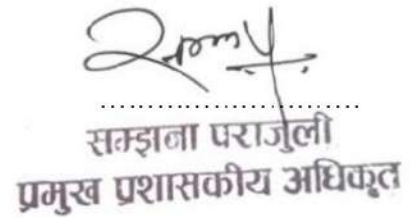 सम्झना पराजुली
प्रमुख प्रशासकीय अधिकृत